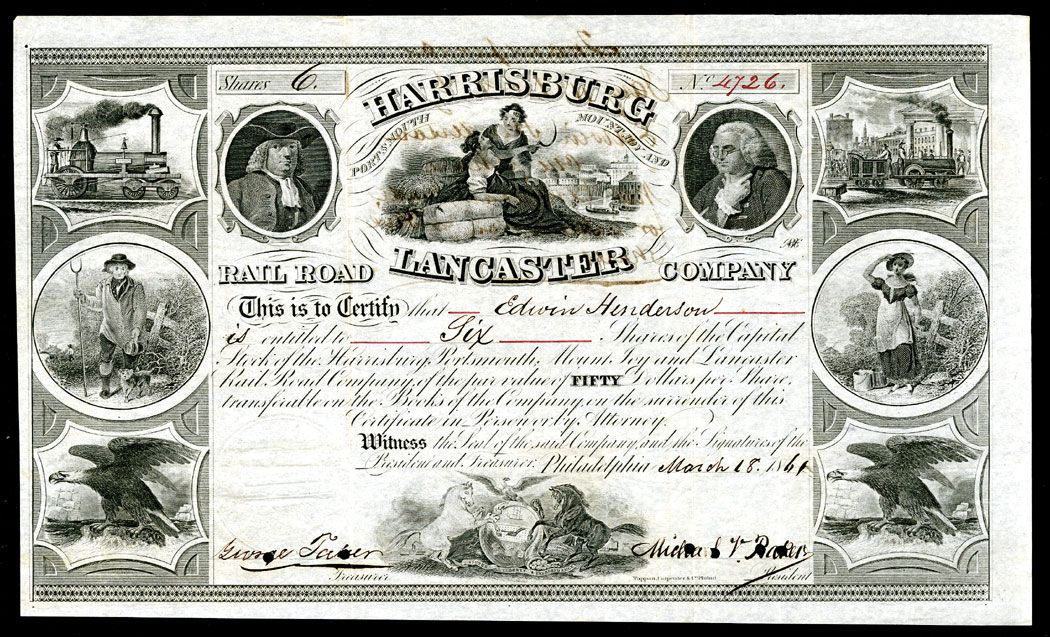 Shares 6.
No. 4726.
HARRISBURG
PORTSMOUTH MOUNT JOY AND
LANCASTER
RAIL ROAD COMPANY
This is to Certify that Edwin Henderson
is entitled to Six Shares of the Capital
Stock of the Harrisburg, Portsmouth, Mount Joy and Lancaster
Rail Road Company, of the par value of FIFTY Dollars per Share,
transferable on the Books of the Company, on the surrender of this
Certificate in Person or by Attorney.
Witness the Seal of the said Company, and the Signatures of the
President and Treasurer. Philadelphia March 18. 1861
George Taber
Treasurer
Toppan, Carpenter & Co. Philad.
Michael V. Baker
President